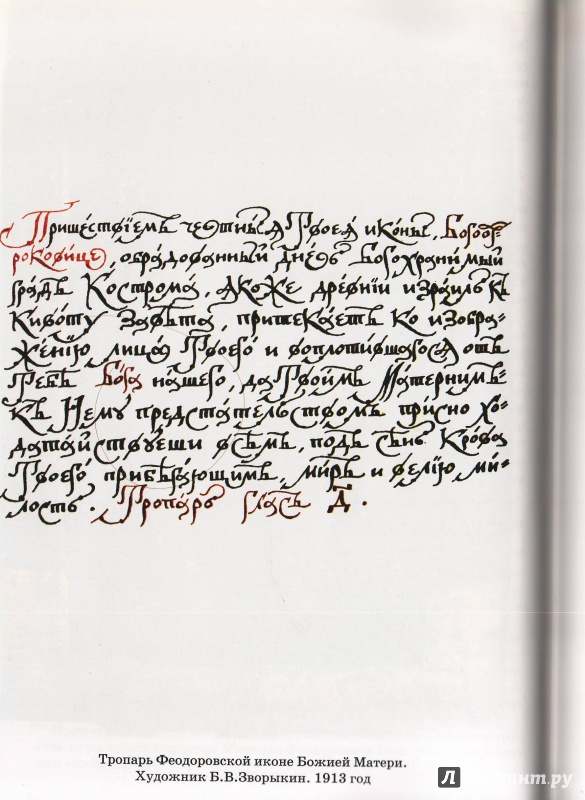 Пришествїемъ честны́ѧ Твоеѧ̀ ико́ны, Богоот-
роковице, обра́дованный дне́сь Богохрани́мый
гра́дъ Кострома̀, ѧ́коже дре́внїи изра́иль къ
Киво́ту Завѣ́та, притека́етъ ко изобра-
же́нїю лица̀ Твоегѡ̀ и воплоти́вшагосѧ отъ
Тебѣ̀ Бо́га на́шего, да Твои́мъ Ма́тернимъ
къ Нему̀ предста́тельствомъ при́сно хо-
да́тайствуеши всѣ́мъ, подъ сѣ́нь Кро́ва
Твоегѡ̀ прибѣга́ющимъ, ми́ръ и ве́лїю ми́-
лость. Тропа́рь гла́съ Д҃.
Тропарь Феодоровской иконе Божией Матери.
Художник Б.В.Зворыкин. 1913 год